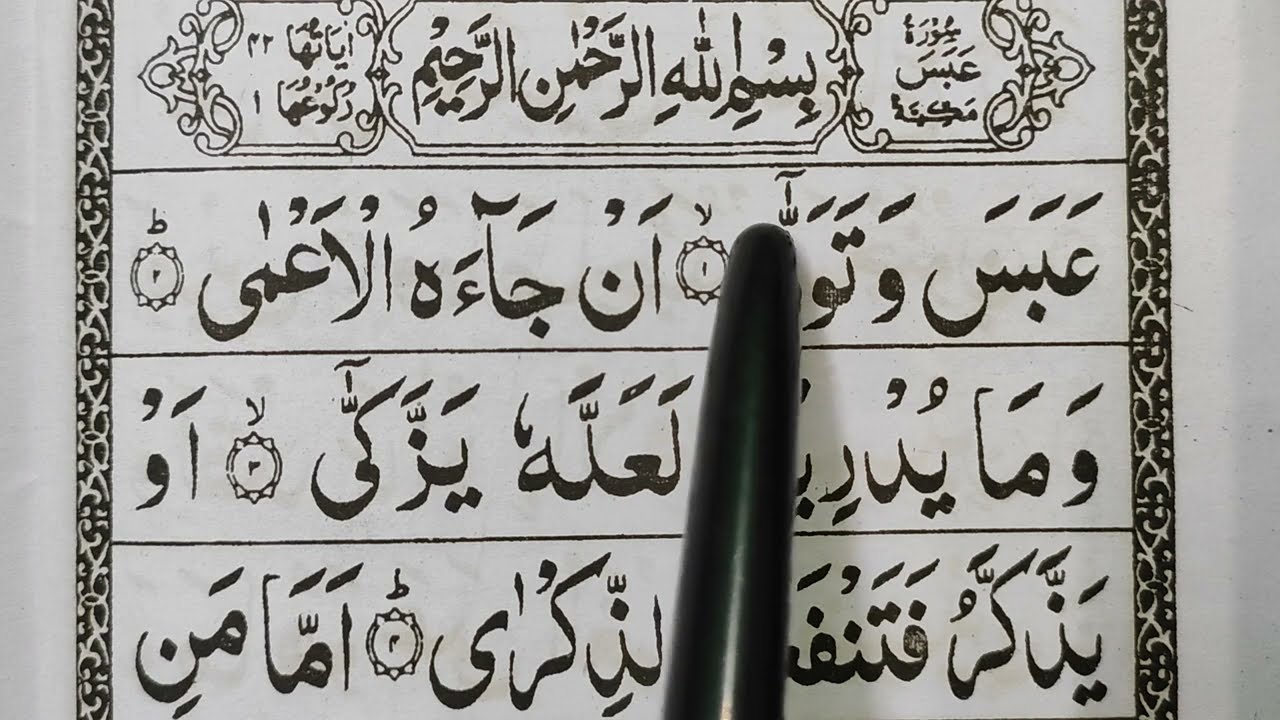 سُوْرَةُ عَبَسَ مَكِّيَّةٌ
بِسْمِ اللّٰهِ الرَّحْمٰنِ الرَّحِيْمِ
اٰيَاتُهَا ٤٢ رُكُوْعُهَا ١
عَبَسَ وَ ۙ‏ ١ اَنْ جَآءَهُ الْاَعْمٰى ؕ‏ ٢
وَمَا لَعَلَّهٗ يَزَّكّٰٓى ۙ‏ ٣ اَوْ
يَذَّكَّرُ ؕ‏ ٤ اَمَّا مَنِ